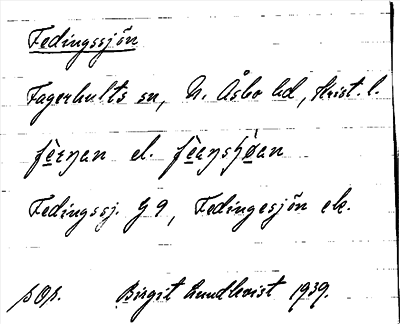 Fedingssjön
Fagerhults sn, N. Åsbo hd, Krist. l.
el.
Fedingssj. G 9, Fedingesjön ek.
sOr. Birgit Lundkvist 1939.